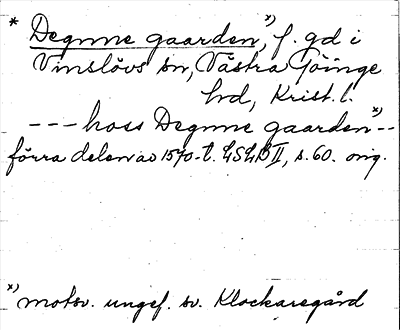 * Degnne gaarden", x) f. gd i
Vinslövs sn, Västra Göinge
hd, Krist. l.
--- hoss Degnne gaarden" x) --
förra delen av 1570-t. LSLB II, s. 60. orig.
x) motsv. ungef. sv. Klockaregård